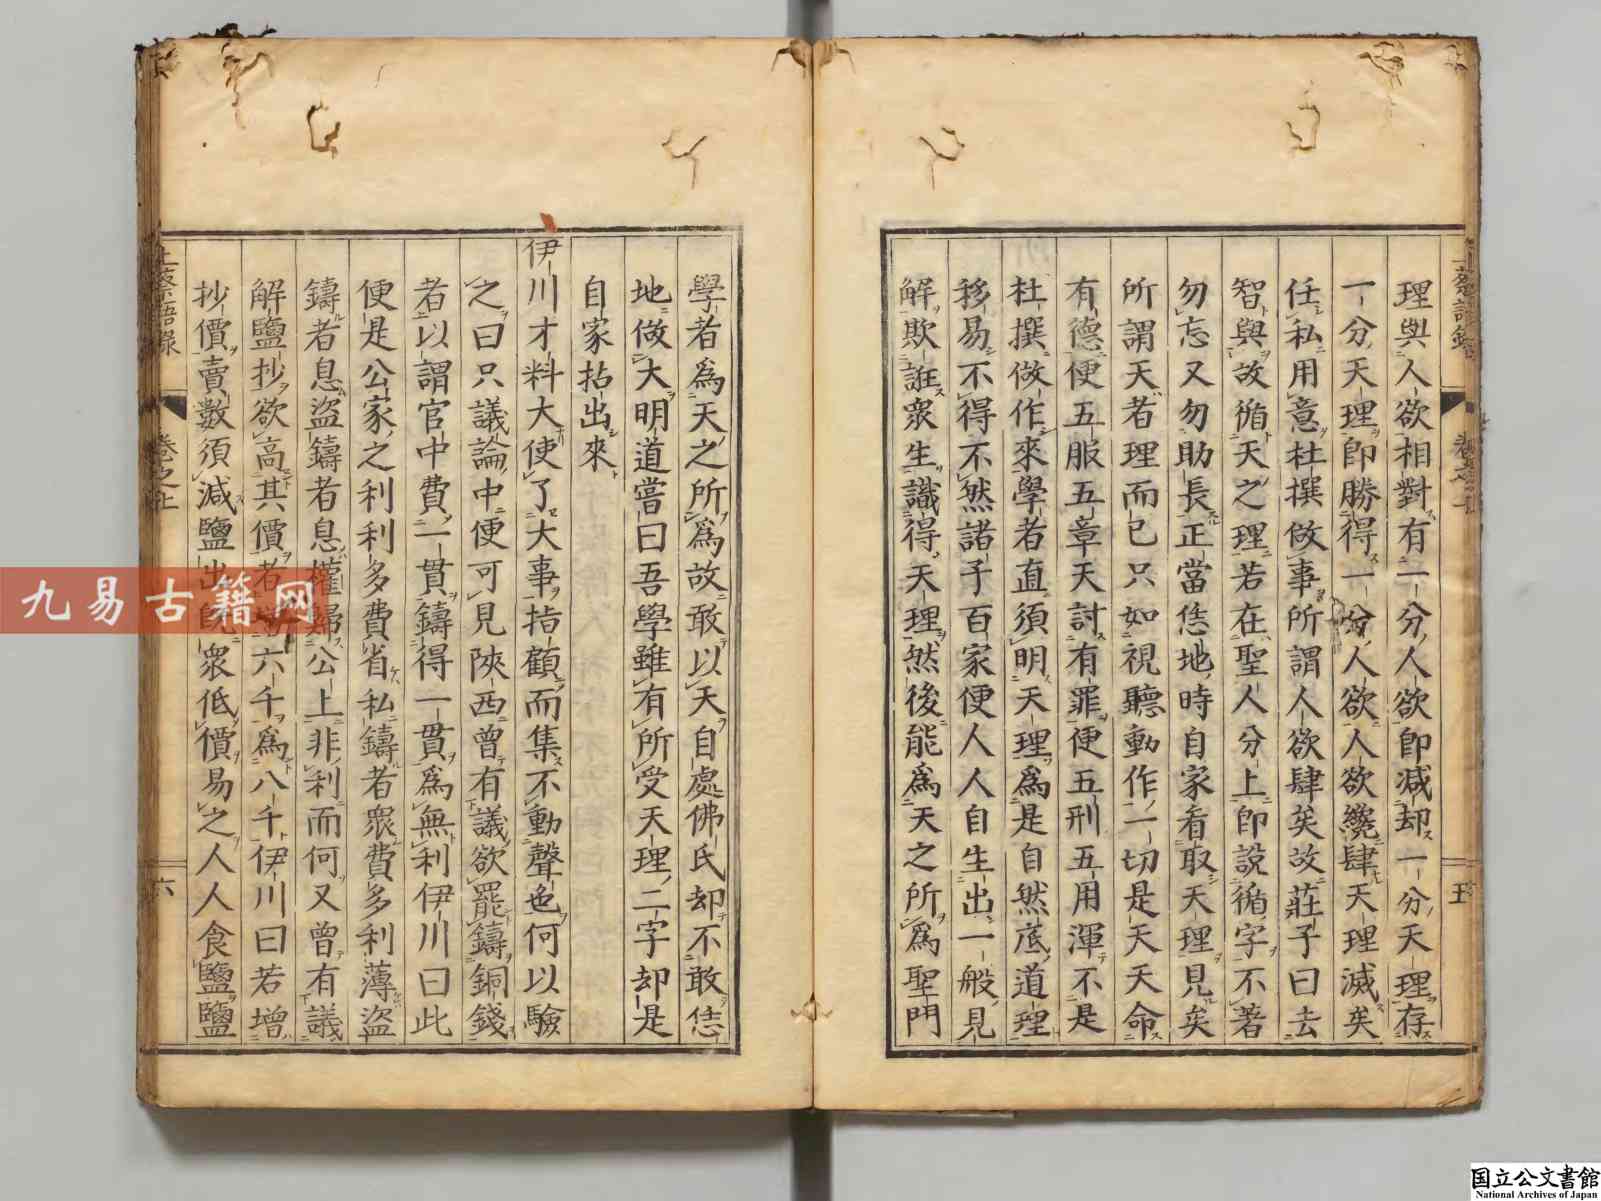 理與人欲相對有一分人欲卽減却一分天理存
一分天理卽勝得一分人欲人欲纔肆天理滅矣
任私用意杜撰做事所謂人欲肆矣故莊子曰去
智與故循天之理若在聖人分上卽說循字不著
勿忘又勿助長正當恁地時自家看取天理見矣
所謂天者理而已只如視聽動作一切是天天命
有德便五服五章天討有罪便五刑五用渾不是
杜撰做作來學者直須明天理爲是自然底道理
移易不得不然諸子百家便人人自生出一般見
解欺誑衆生識得天理然後能爲天之所爲聖門
學者爲天之所爲故敢以天自處佛氏却不敢恁
地做大明道嘗曰吾學雖有所受天理二字却是
自家拈出來
伊川才料大使了大事指顧而集不動聲色何以驗
之曰只議論中便可見陝西曾有議欲罷鑄銅錢
者以謂官中費一貫鑄得一貫爲無利伊川曰此
便是公家之利利多費省私鑄者衆費多利薄盜
鑄者息盜鑄者息權歸公上非利而何又曾有議
解鹽抄欲高其價者增六千爲八千伊川曰若增
抄價賣數須減鹽出旣衆低價易之人人食鹽鹽
上蔡語錄
卷之上
五
上蔡語錄
卷之上
六
九易古籍网
国立公文書館
National Archives of Japan